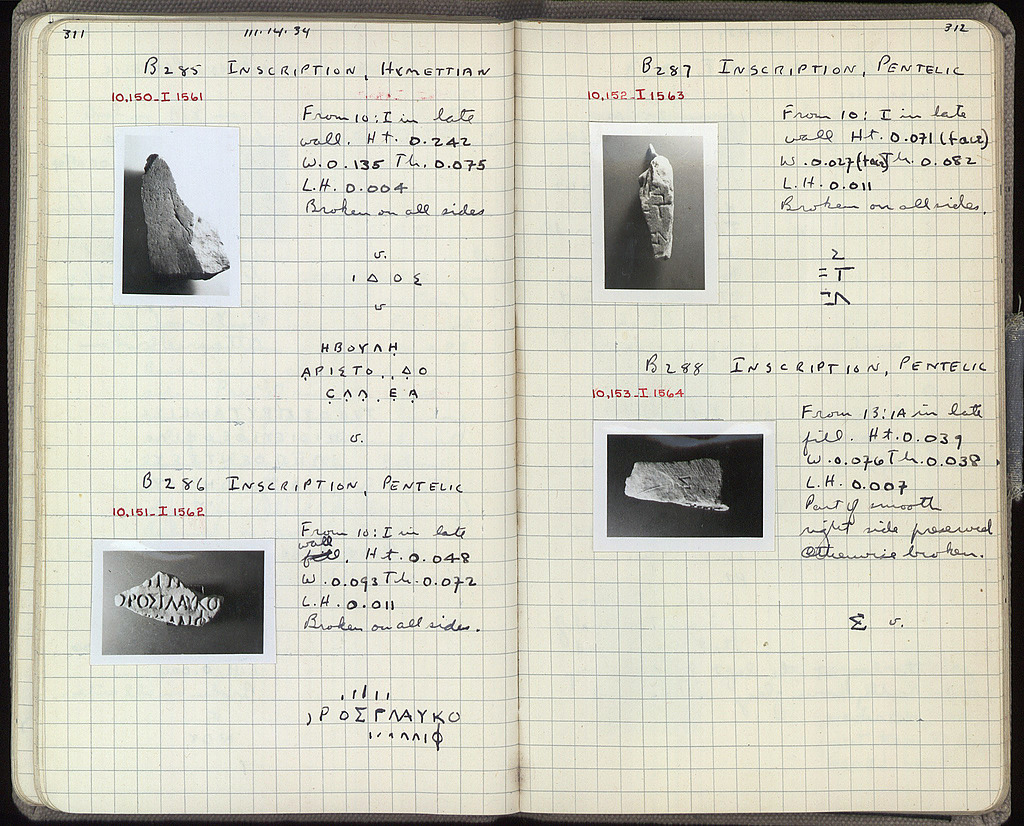 311
III.14.34
B285 INSCRIPTION, HYMETTIAN
10,150-I 1561
From 10:I in late
wall. Ht. 0.242
W. 0.135 Th. 0.075
L.H. 0.004
Broken on all sides
v.
Ι Δ Ο Σ
v
ΗΒΟΥΛΗ
ΑΡΙΣΤΟ..ΔΟ
v.
B286 INSCRIPTION, PENTELIC
10,151-I 1562
From 10:I in late
wall
fill. Ht. 0.048
W. 0.093 Th. 0.072
L.H. 0.011
Broken on all sides.
ΡΟΣΓΛΑΥΚΟ
ΡΟΣΓΛΑΥΚΟ
312
B287 INSCRIPTION, PENTELIC
10,152-I 1563
From 10:I in late
wall Ht. 0.071 (face)
W. 0.027 (face) Th. 0.082
L.H. 0.011
Broken on all sides.
B288 INSCRIPTION, PENTELIC
10,153-I 1564
From 13:1A in late
fill. Ht. 0.039
W. 0.076 Th. 0.038
L.H. 0.007
Part of smooth
right side preserved
otherwise broken.
Σ v.